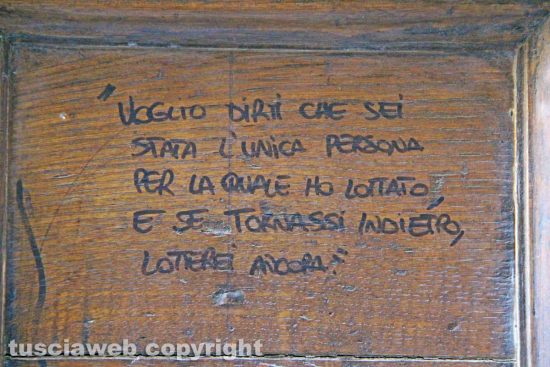 "VOGLIO DIRTI CHE SEI
STATA L'UNICA PERSONA
PER LA QUALE HO LOTTATO,
E SE TORNASSI INDIETRO,
LOTTEREI ANCORA."
tusciaweb copyright